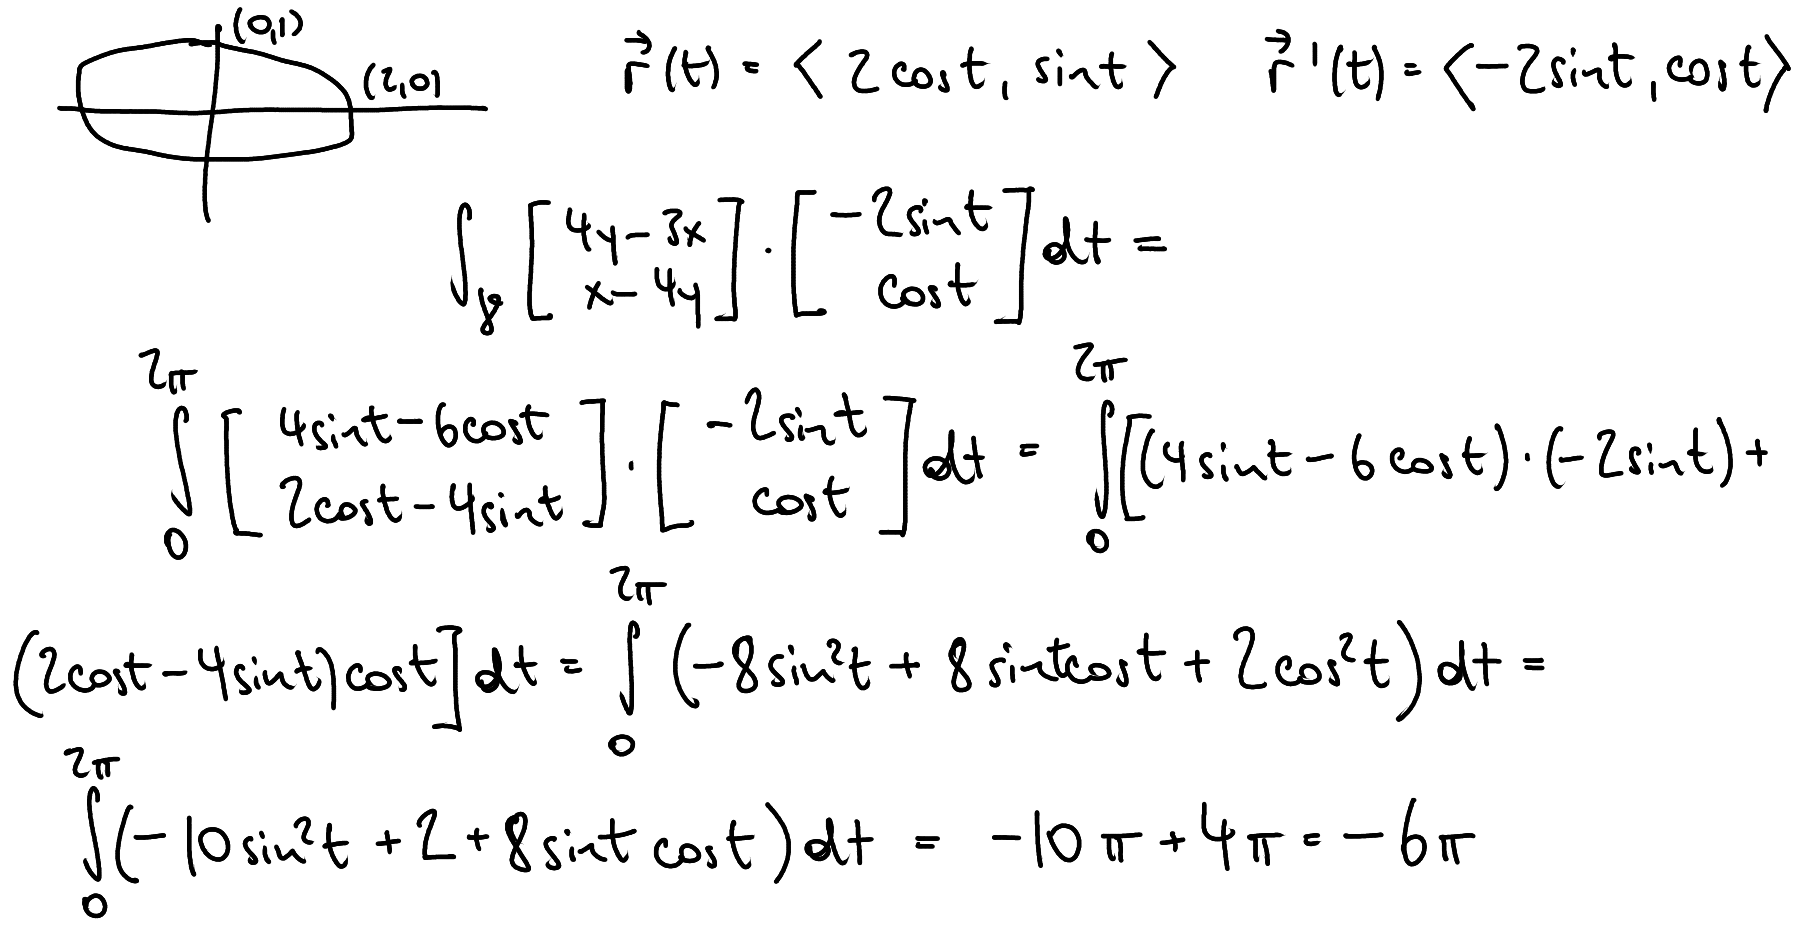 (0,1)
(2,0)
r⃗(t) = ⟨2cost, sint⟩ r⃗'(t) = ⟨-2sint, cost⟩
∫_γ [4y-3x; x-4y] · [-2sint; cost] dt =
∫_0^{2π} [4sint-6cost; 2cost-4sint] · [-2sint; cost] dt = ∫_0^{2π} [(4sint-6cost)·(-2sint)+
(2cost-4sint)cost] dt = ∫_0^{2π} (-8sin²t + 8sintcost + 2cos²t) dt =
∫_0^{2π} (-10sin²t + 2 + 8sint cost) dt = -10π + 4π = -6π